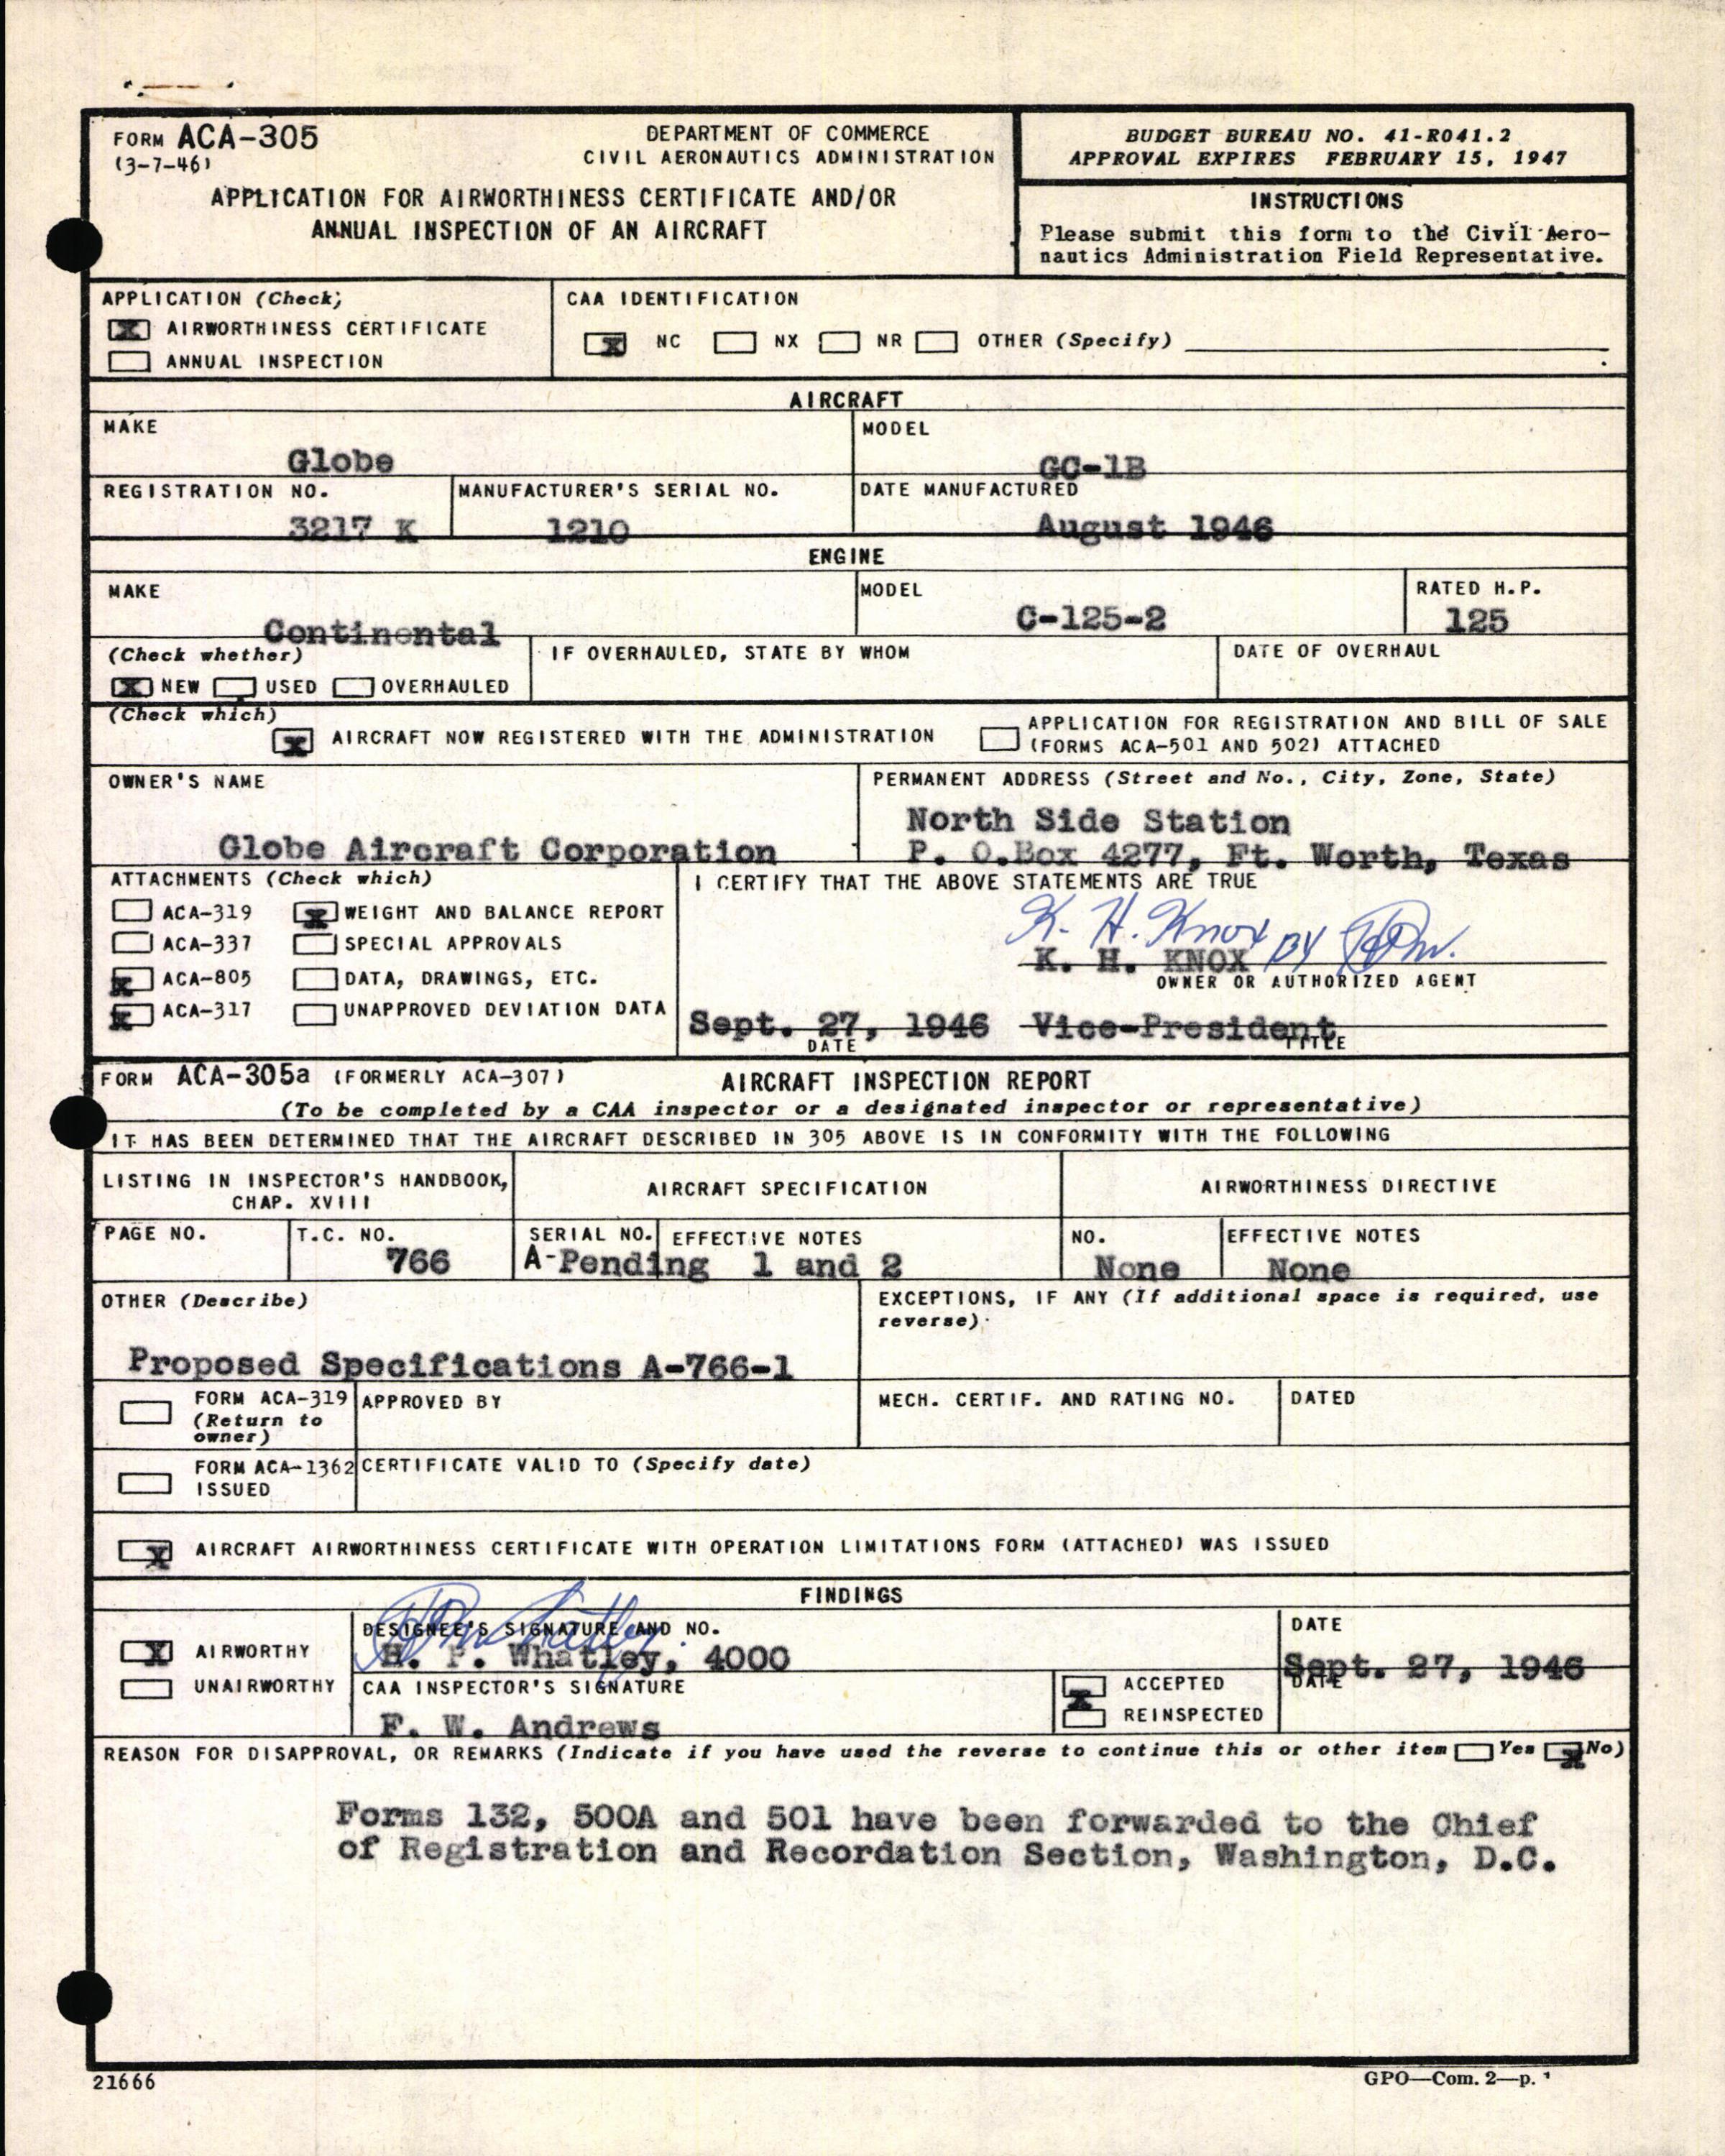 FORM ACA-305
(3-7-46)
DEPARTMENT OF COMMERCE
CIVIL AERONAUTICS ADMINISTRATION
APPLICATION FOR AIRWORTHINESS CERTIFICATE AND/OR
ANNUAL INSPECTION OF AN AIRCRAFT
BUDGET BUREAU NO. 41-R041.2
APPROVAL EXPIRES FEBRUARY 15, 1947
INSTRUCTIONS
Please submit this form to the Civil Aero-
nautics Administration Field Representative.
APPLICATION (Check)
X AIRWORTHINESS CERTIFICATE
ANNUAL INSPECTION
CAA IDENTIFICATION
X NC NX NR OTHER (Specify)
AIRCRAFT
MAKE
Globe
MODEL
GC-1B
REGISTRATION NO.
3217 K
MANUFACTURER'S SERIAL NO.
1210
DATE MANUFACTURED
August 1946
ENGINE
MAKE
Continental
MODEL
C-125-2
RATED H.P.
125
(Check whether)
X NEW USED OVERHAULED
IF OVERHAULED, STATE BY WHOM
DATE OF OVERHAUL
(Check which)
X AIRCRAFT NOW REGISTERED WITH THE ADMINISTRATION
APPLICATION FOR REGISTRATION AND BILL OF SALE
(FORMS ACA-501 AND 502) ATTACHED
OWNER'S NAME
Globe Aircraft Corporation
PERMANENT ADDRESS (Street and No., City, Zone, State)
North Side Station
P. O.Box 4277, Ft. Worth, Texas
ATTACHMENTS (Check which)
ACA-319 X WEIGHT AND BALANCE REPORT
ACA-337 SPECIAL APPROVALS
X ACA-805 DATA, DRAWINGS, ETC.
X ACA-317 UNAPPROVED DEVIATION DATA
I CERTIFY THAT THE ABOVE STATEMENTS ARE TRUE
K. H. Knox BY
K. H. KNOX
OWNER OR AUTHORIZED AGENT
Sept. 27, 1946 Vice-President
DATE TITLE
FORM ACA-305a (FORMERLY ACA-307) AIRCRAFT INSPECTION REPORT
(To be completed by a CAA inspector or a designated inspector or representative)
IT HAS BEEN DETERMINED THAT THE AIRCRAFT DESCRIBED IN 305 ABOVE IS IN CONFORMITY WITH THE FOLLOWING
LISTING IN INSPECTOR'S HANDBOOK,
CHAP. XVIII
AIRCRAFT SPECIFICATION
AIRWORTHINESS DIRECTIVE
PAGE NO.
T.C. NO.
766
SERIAL NO. EFFECTIVE NOTES
A-Pending 1 and 2
NO.
None
EFFECTIVE NOTES
None
OTHER (Describe)
Proposed Specifications A-766-1
EXCEPTIONS, IF ANY (If additional space is required, use
reverse).
FORM ACA-319
(Return to
owner)
APPROVED BY
MECH. CERTIF. AND RATING NO.
DATED
FORM ACA-1362
ISSUED
CERTIFICATE VALID TO (Specify date)
X AIRCRAFT AIRWORTHINESS CERTIFICATE WITH OPERATION LIMITATIONS FORM (ATTACHED) WAS ISSUED
FINDINGS
X AIRWORTHY
UNAIRWORTHY
DESIGNEE'S SIGNATURE AND NO.
H. P. Whatley, 4000
DATE
Sept. 27, 1946
CAA INSPECTOR'S SIGNATURE
F. W. Andrews
X ACCEPTED
REINSPECTED
DATE
REASON FOR DISAPPROVAL, OR REMARKS (Indicate if you have used the reverse to continue this or other item Yes X No)
Forms 132, 500A and 501 have been forwarded to the Chief
of Registration and Recordation Section, Washington, D.C.
21666
GPO—Com. 2—p.